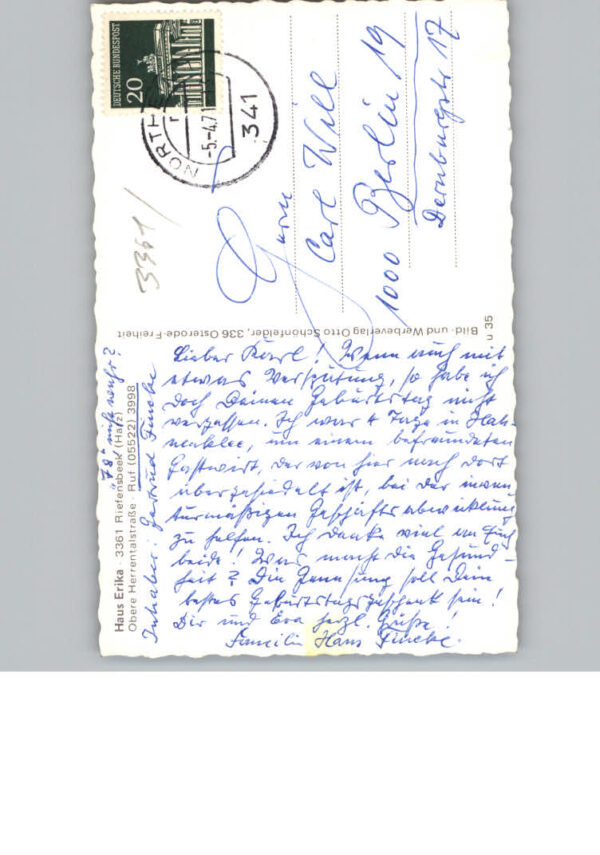 DEUTSCHE BUNDESPOST
20
NORTH
-5.-4.71
341
3361
Herrn
Carl Will
1000 Berlin 19
Dernburgstr. 17
Bild- und Werbeverlag Otto Schönfelder, 336 Osterode-Freiheit
u 35
Haus Erika · 3361 Riefensbeek (Harz)
Obere Herrentalstraße · Ruf (05522) 3998
Inhaber: Gertrud Fincke
"78" nicht wahr?
Lieber Karl! Wenn auch mit
etwas Verspätung, so habe ich
doch Deinen Geburtstag nicht
vergessen. Ich war 4 Tage in Hah-
nenklee, um einem befreundeten
Gastwirt, der von hier nach dort
übergesiedelt ist, bei der inven-
turmäßigen Geschäftsabwicklung
zu helfen. Ich denke viel an Euch
beide! Was macht die Gesund-
heit? Die Genesung soll Dein
bestes Geburtstagsgeschenk sein!
Dir und Eva herzl. Grüße!
Familie Hans Fincke.